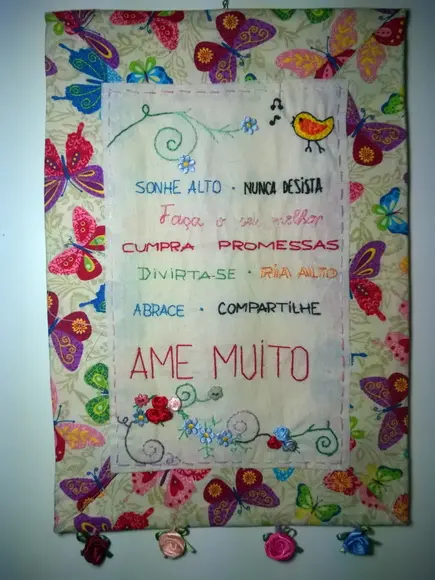 SONHE ALTO · NUNCA DESISTA
Faça o seu melhor
CUMPRA PROMESSAS
DIVIRTA-SE · RIA ALTO
ABRACE · COMPARTILHE
AME MUITO